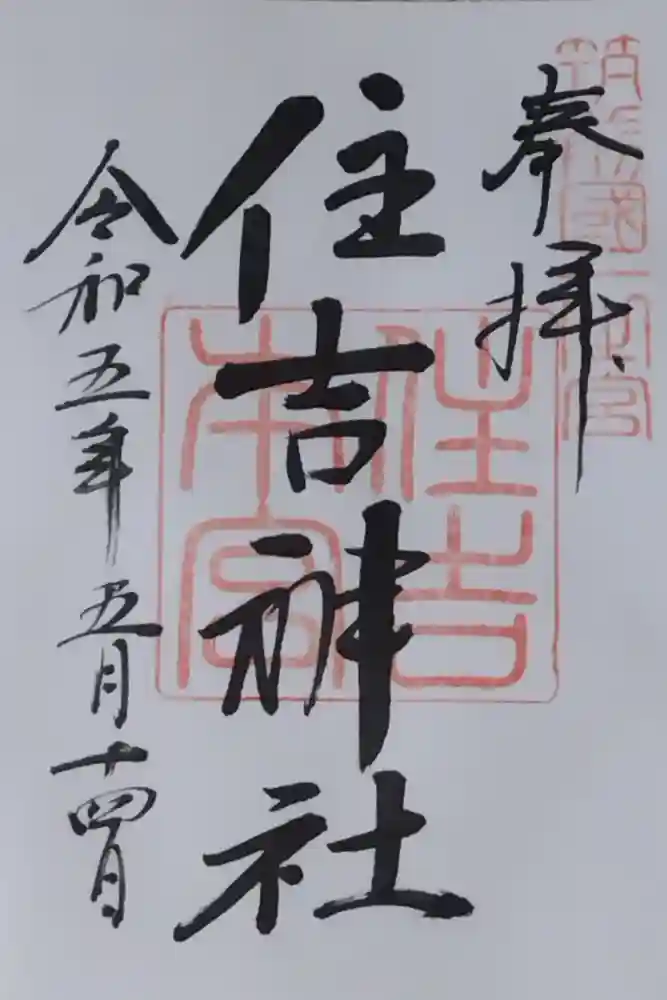 筑前國一之宮
奉拝
住吉神社
住吉本宮
令和五年五月十四日